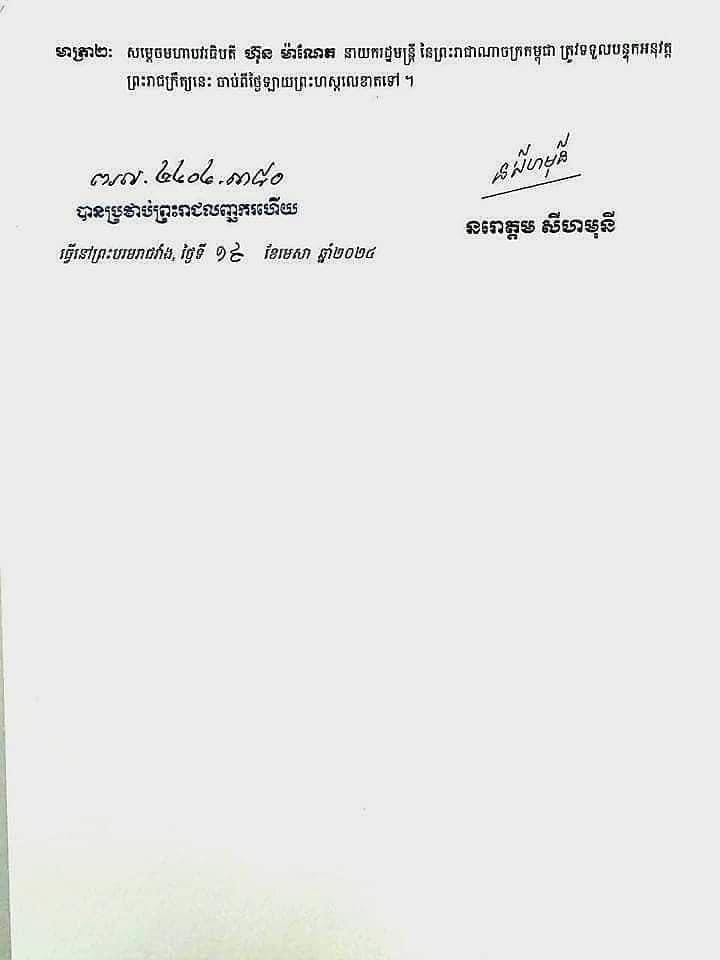 មាត្រា២: សម្តេចមហាបវរធិបតី ហ៊ុន ម៉ាណែត នាយករដ្ឋមន្ត្រី នៃព្រះរាជាណាចក្រកម្ពុជា ត្រូវទទួលបន្ទុកអនុវត្ត
ព្រះរាជក្រឹត្យនេះ ចាប់ពីថ្ងៃឡាយព្រះហស្តលេខាតទៅ ។
ន សីហមុនី
ព.រ.ល. ២៤០៤.៣៨០
បានប្រថាប់ព្រះរាជលញ្ឆករហើយ
នរោត្តម សីហមុនី
ធ្វើនៅព្រះបរមរាជវាំង, ថ្ងៃទី ១៩ ខែមេសា ឆ្នាំ២០២៤